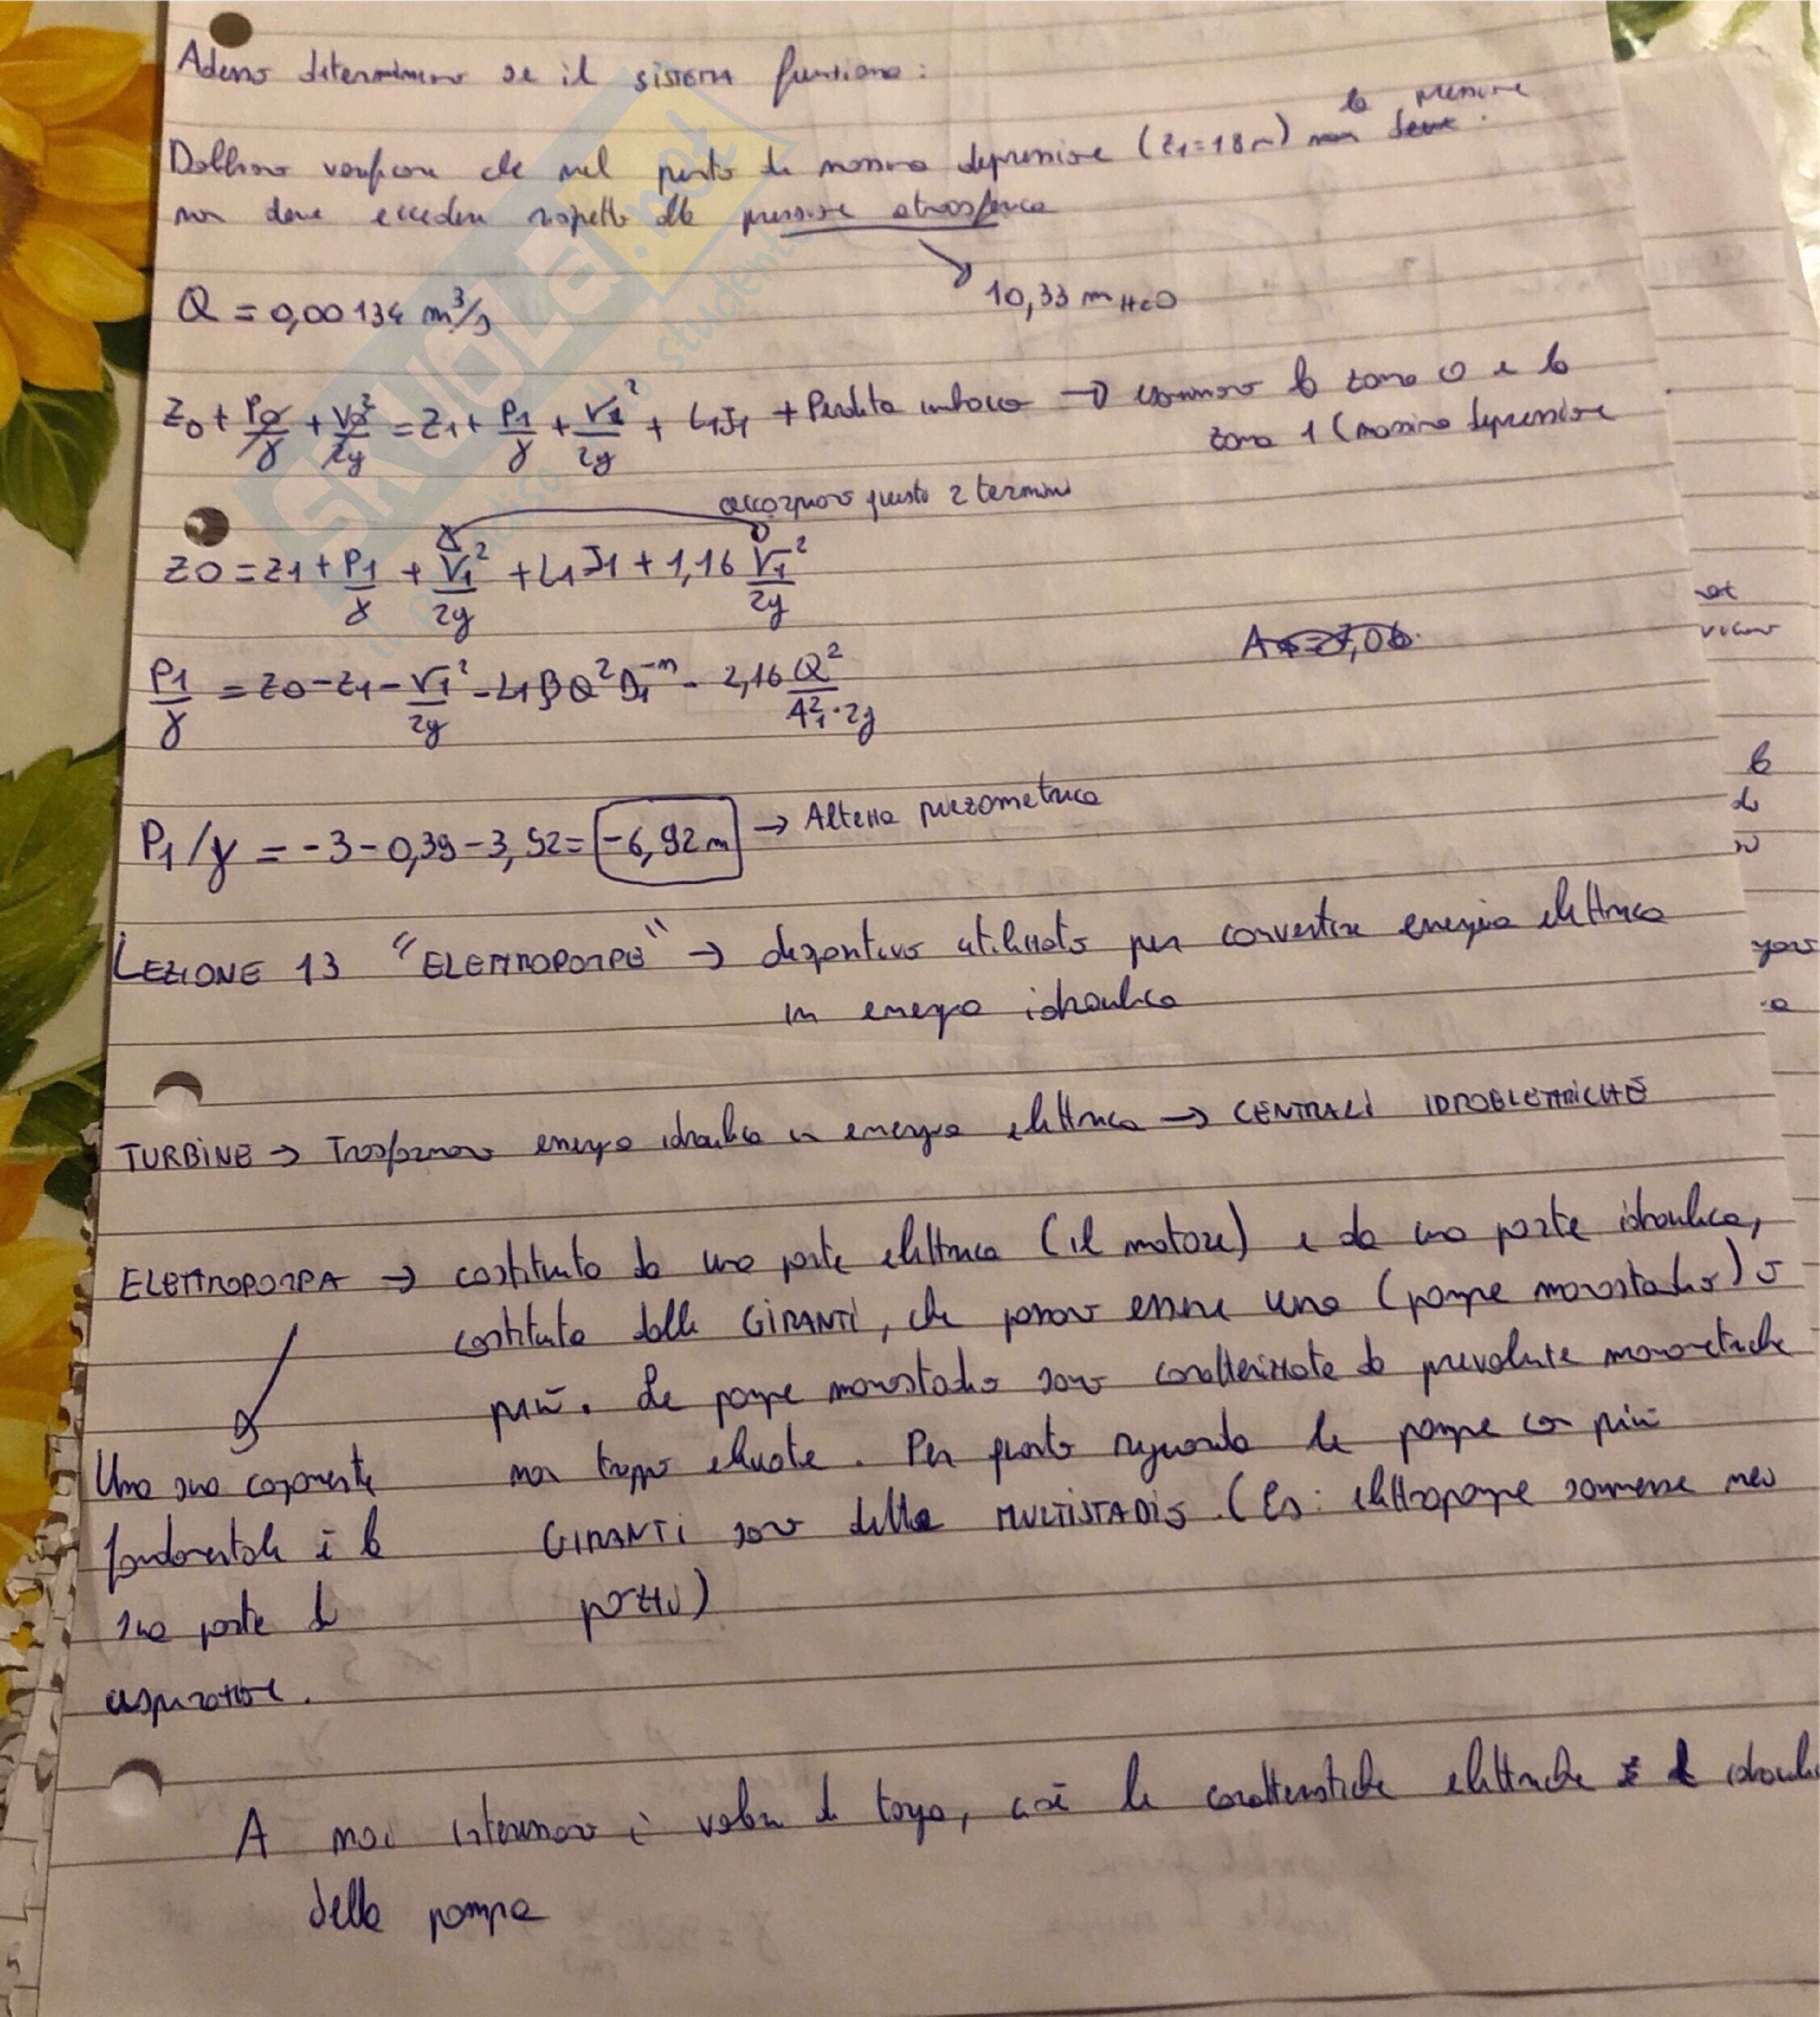 Adesso determiniamo se il sistema funziona:
la pressione
Dobbiamo verificare che nel punto di massima depressione (z1=18m) non deve
non deve eccedere rispetto alla pressione atmosferica
Q = 0,00134 m³/s
10,33 m H2O
Z0 + P0/γ + V0²/2g = Z1 + P1/γ + V1²/2g + L1J1 + Perdita imbocco → usiamo la zona 0 e la
zona 1 (massima depressione
accorpiamo questi 2 termini
Z0 = Z1 + P1/γ + V1²/2g + L1J1 + 1,16 V1²/2g
P1/γ = Z0 - Z1 - V1²/2g - L1βQ²D1⁻ⁿ - 2,16 Q²/A1²·2g
P1/γ = -3 - 0,39 - 3,52 = -6,92 m → Altezza piezometrica
LEZIONE 13 "ELETTROPOMPE" → dispositivo utilizzato per convertire energia elettrica
in energia idraulica
TURBINE → Trasformano energia idraulica in energia elettrica → CENTRALI IDROELETTRICHE
ELETTROPOMPA → costituita da una parte elettrica (il motore) e da una parte idraulica,
costituita dalle GIRANTI, che possono essere una (pompe monostadio) o
più. Le pompe monostadio sono caratterizzate da prevalenze manometriche
non troppo elevate. Per quanto riguarda le pompe con più
GIRANTI sono dette MULTISTADIO. (Es: elettropompe sommerse nei
pozzi)
Una sua componente
fondamentale è la
sua parte di
aspirazione.
A noi interessano i valori di targa, cioè le caratteristiche elettriche e
della pompa
skuola.net